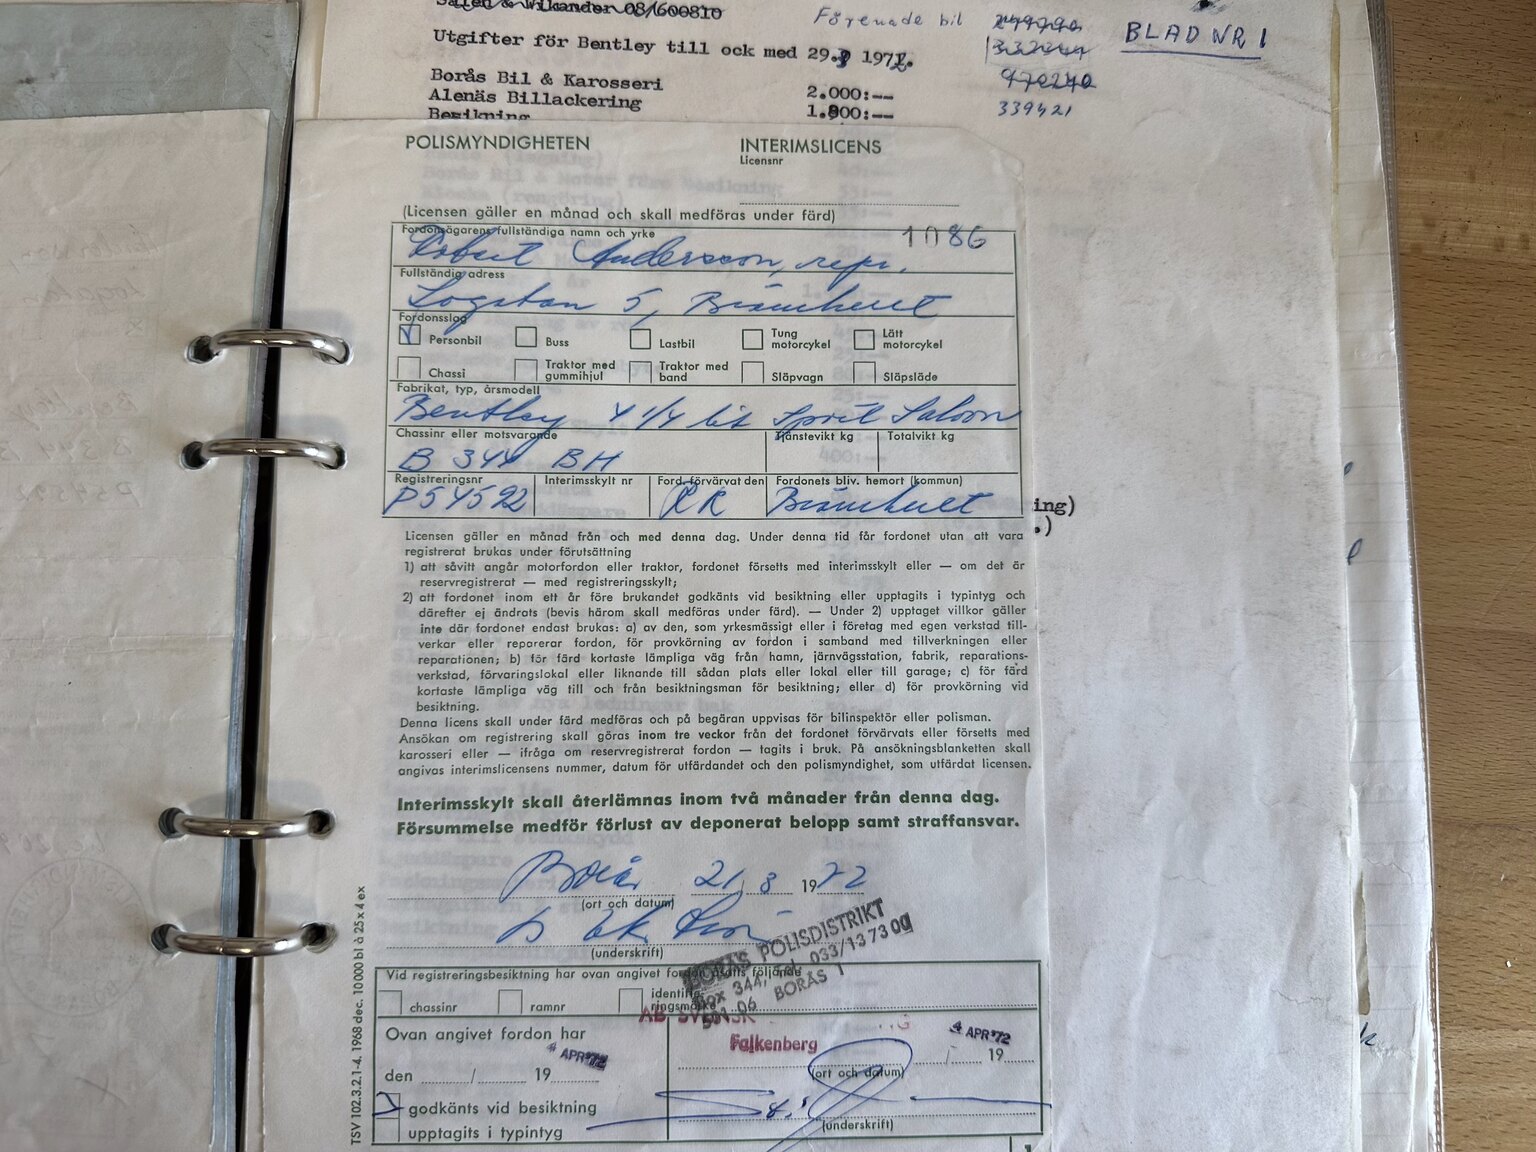 Salén & Wikander 08/600810
Förenade bil
BLAD NR 1
Utgifter för Bentley till ock med 29. 1972.
Borås Bil & Karosseri 2.000:--
970240
Alenäs Billackering 1.800:--
339421
Besikning
POLISMYNDIGHETEN
INTERIMSLICENS
Licensnr
(Licensen gäller en månad och skall medföras under färd)
1086
Fordonsägarens fullständiga namn och yrke
Robert Andersson, repr.
Fullständig adress
5, Brämhult
Fordonsslag
Personbil Buss Lastbil Tung motorcykel Lätt motorcykel
Chassi Traktor med gummihjul Traktor med band Släpvagn Släpsläde
Fabrikat, typ, årsmodell
Bentley 4 1/4 lit Sport Saloon
Chassinr eller motsvarande Tjänstevikt kg Totalvikt kg
B 344 BH
Registreringsnr Interimsskylt nr Ford. förvärvat den Fordonets bliv. hemort (kommun)
P54592 RR Brämhult
ing)
.)
Licensen gäller en månad från och med denna dag. Under denna tid får fordonet utan att vara
registrerat brukas under förutsättning
1) att såvitt angår motorfordon eller traktor, fordonet försetts med interimsskylt eller — om det är
reservregistrerat — med registreringsskylt;
2) att fordonet inom ett år före brukandet godkänts vid besiktning eller upptagits i typintyg och
därefter ej ändrats (bevis härom skall medföras under färd). — Under 2) upptaget villkor gäller
inte där fordonet endast brukas: a) av den, som yrkesmässigt eller i företag med egen verkstad till-
verkar eller reparerar fordon, för provkörning av fordon i samband med tillverkningen eller
reparationen; b) för färd kortaste lämpliga väg från hamn, järnvägsstation, fabrik, reparations-
verkstad, förvaringslokal eller liknande till sådan plats eller lokal eller till garage; c) för färd
kortaste lämpliga väg till och från besiktningsman för besiktning; eller d) för provkörning vid
besiktning.
Denna licens skall under färd medföras och på begäran uppvisas för bilinspektör eller polisman.
Ansökan om registrering skall göras inom tre veckor från det fordonet förvärvats eller försetts med
karosseri eller — ifråga om reservregistrerat fordon — tagits i bruk. På ansökningsblanketten skall
angivas interimslicensens nummer, datum för utfärdandet och den polismyndighet, som utfärdat licensen.
Interimsskylt skall återlämnas inom två månader från denna dag.
Försummelse medför förlust av deponerat belopp samt straffansvar.
Borås 21.3 1972
(ort och datum)
(underskrift)
BORÅS POLISDISTRIKT
Box 344, Tel. 033/13 73 00
501 06 BORÅS 1
Vid registreringsbesiktning har ovan angivet fordon åsatts följande
chassinr ramnr identifieringsmärke
AB SVENSK
Ovan angivet fordon har
Falkenberg
4 APR '72
den / 19
4 APR '72
/ 19
(ort och datum)
godkänts vid besiktning
upptagits i typintyg
(underskrift)
TSV 102.3.2.1-4. 1968 dec. 10 000 bl à 25 x 4 ex